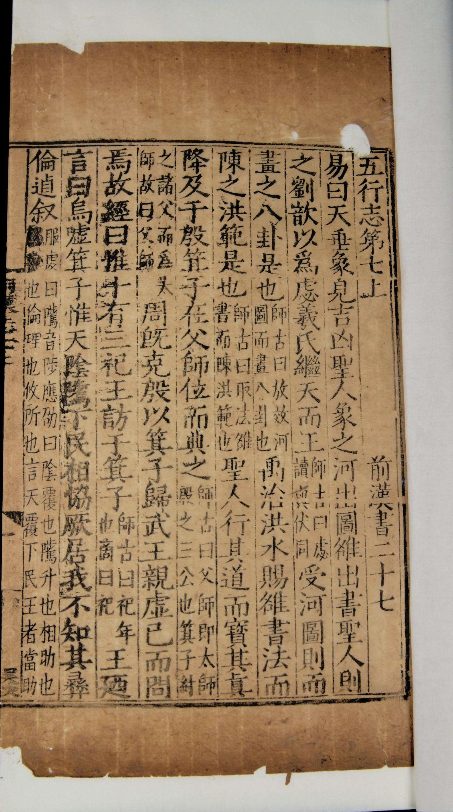 五行志第七上 前漢書二十七
易曰天垂象見吉凶聖人象之河出圖雒出書聖人則
之劉歆以爲虙羲氏繼天而王師古曰虙讀與伏同受河圖則而
畫之八卦是也師古曰放效河圖而畫八卦也禹治洪水賜雒書法而
陳之洪範是也師古曰取法雒書而陳洪範也聖人行其道而寶其真
降及于殷箕子在父師位而典之師古曰父師即太師殷之三公也箕子紂
之諸父而爲太師故曰父師周旣克殷以箕子歸武王親虛己而問
焉故經曰惟十有三祀王訪于箕子師古曰祀年也商曰祀王廼
言曰烏嘑箕子惟天陰騭下民相協厥居我不知其彝
倫逌叙服虔曰騭音陟應劭曰陰覆也騭升也相助也倫理也攸所也言天覆下民王者當助